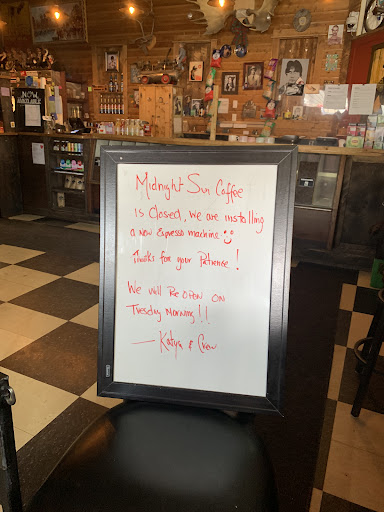 Midnight Sun Coffee
is closed, we are installing
a new Espresso machine :)
Thanks for your Patience!
We will Re open on
Tuesday Morning!!
— Katya & Crew
NOW